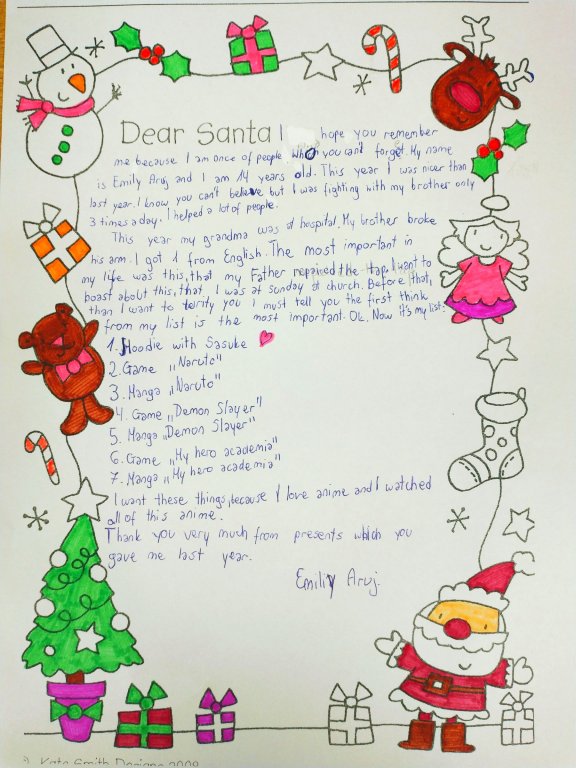 Dear Santa I hope you remember
me because I am once of people who you can't forget. My name
is Emily Aruj and I am 14 years old. This year I was nicer than
last year. I know you can't believe but I was fighting with my brother only
3 times a day. I helped a lot of people.
This year my grandma was at hospital. My brother broke
his arm. I got 1 from English. The most important in
my life was this, that my Father repaired the tap. I want to
boast about this, that I was at Sunday at church. Before that,
than I want to terify you i must tell you the first think
from my list is the most important. Ok. Now it's my list:
1. Hoodie with Sasuke
2. Game „Naruto"
3. Manga „Naruto"
4. Game „Demon Slayer"
5. Manga „Demon Slayer"
6. Game „My hero academia"
7. Manga „My hero academia"
I want these things, because I love anime and I watched
all of this anime.
Thank you very much from presents which you
gave me last year.
Emiliy Aruj.
Kate Smith Designs 2009